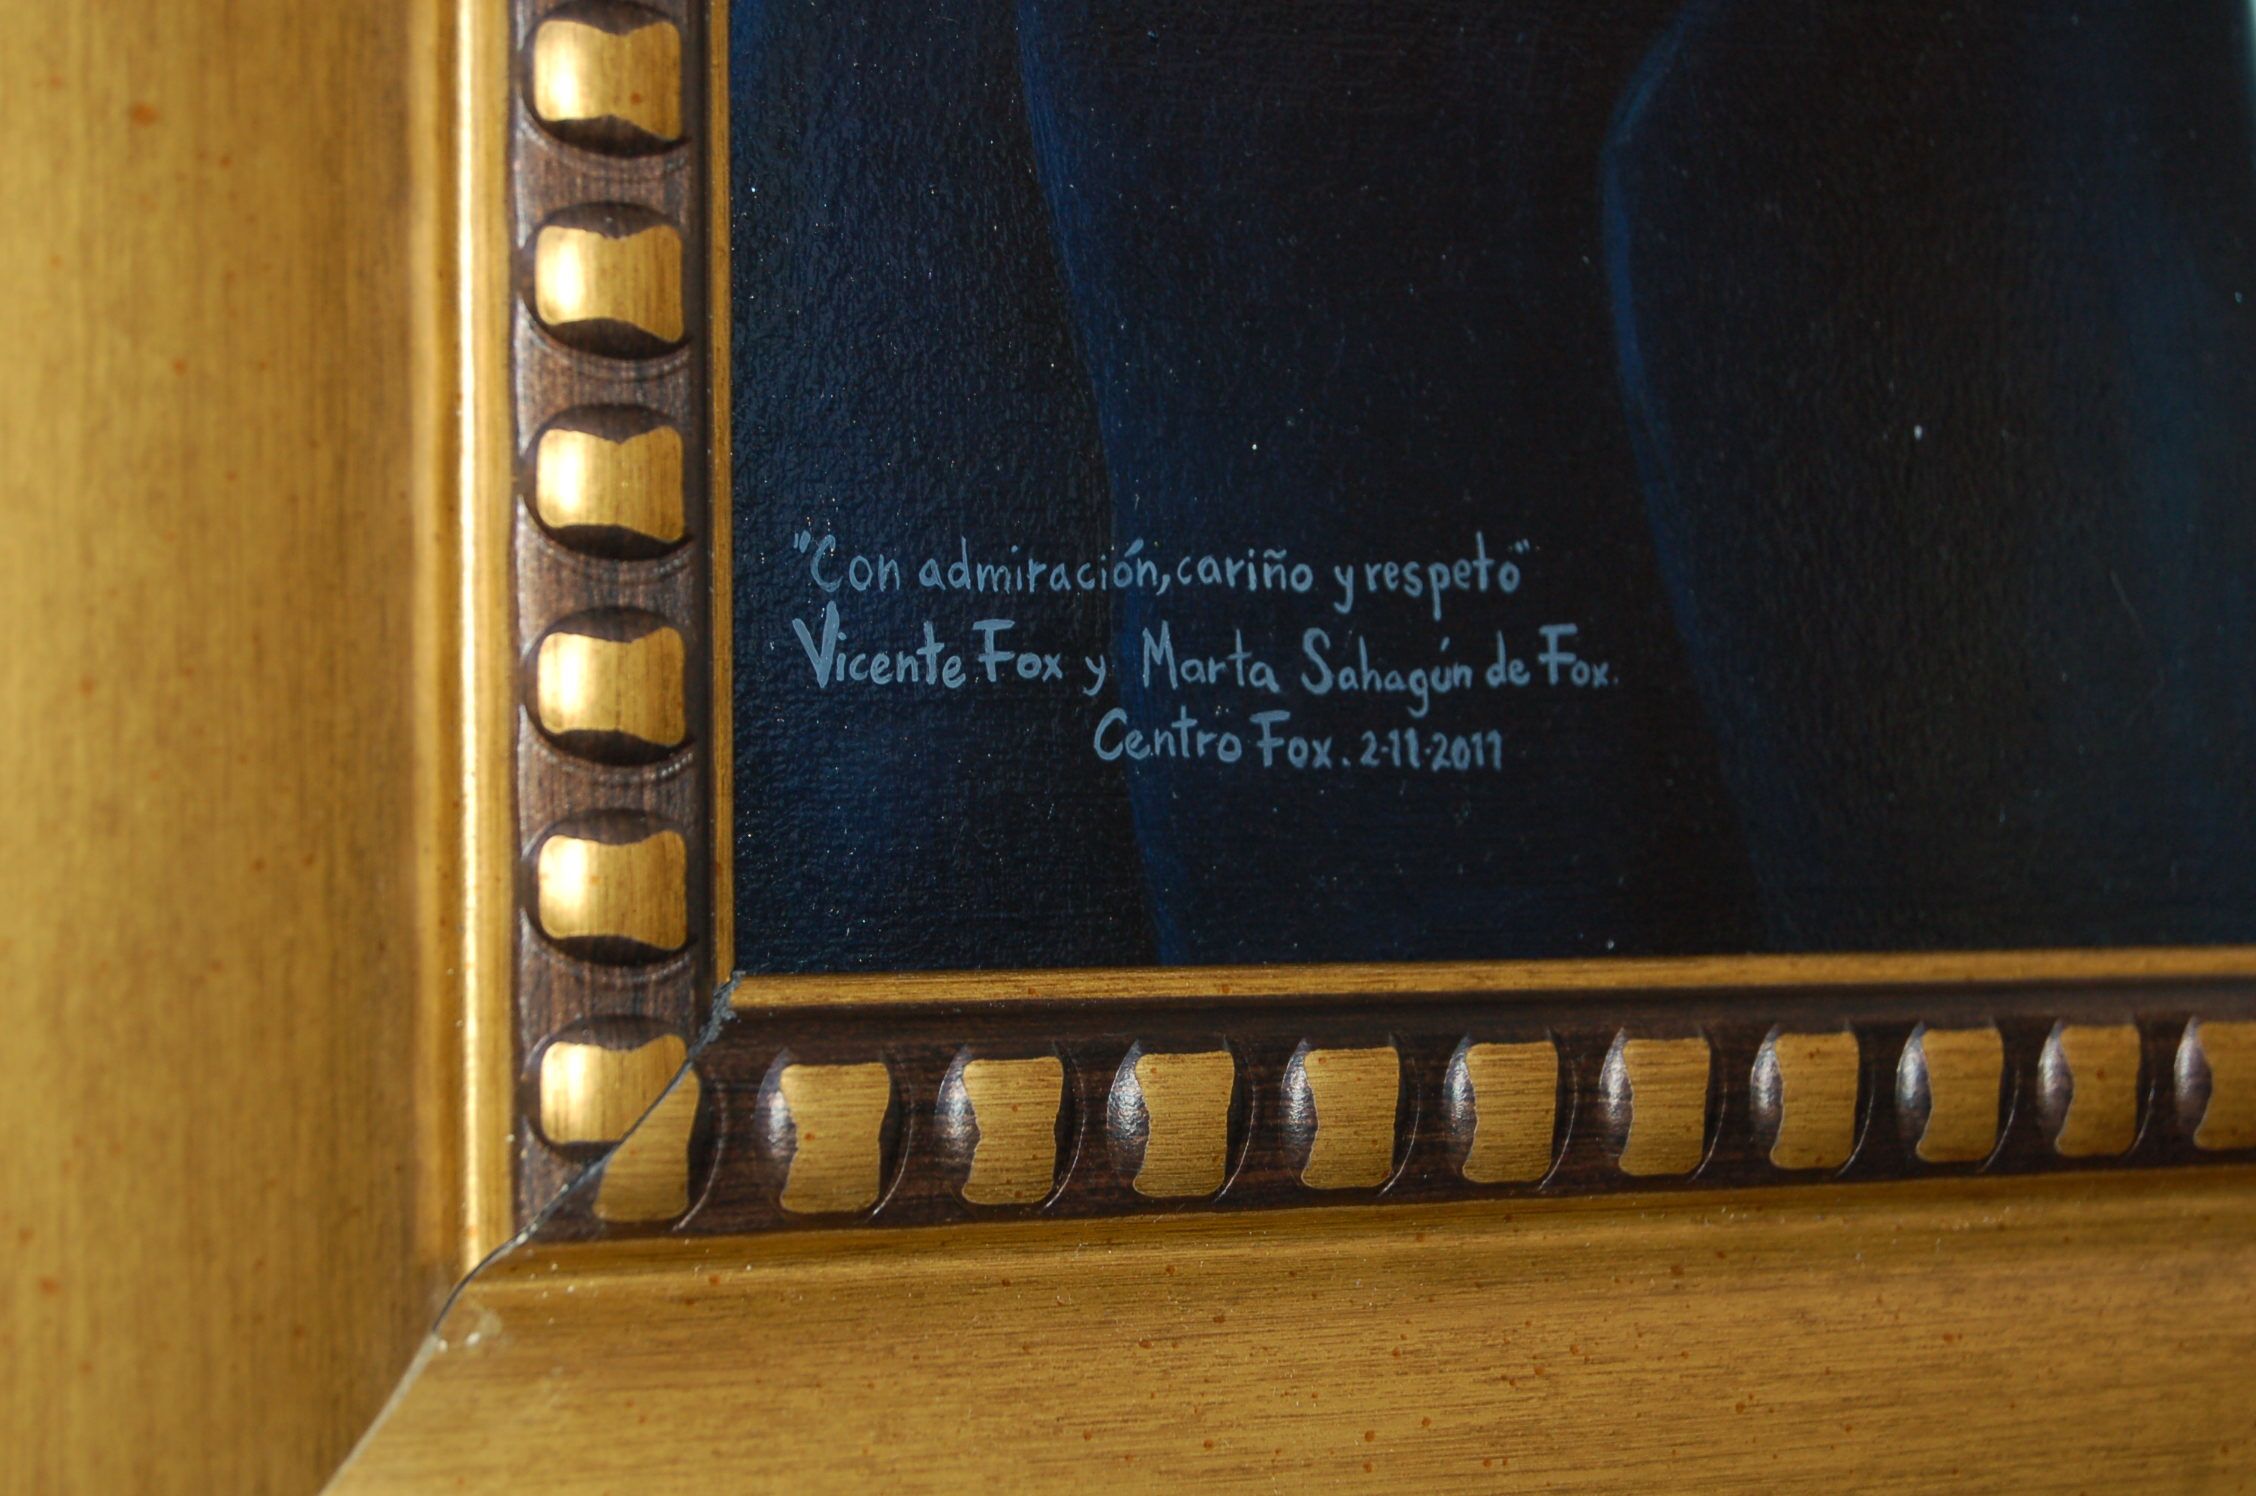 "Con admiración, cariño y respeto"
Vicente Fox y Marta Sahagún de Fox.
Centro Fox. 2-11-2011